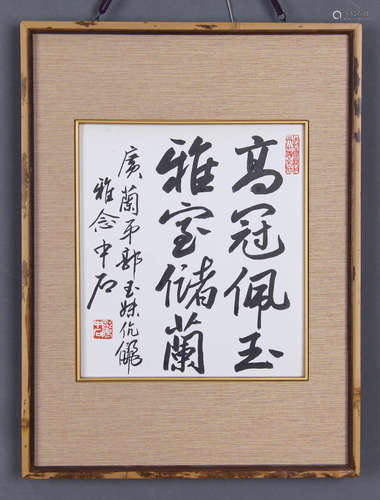 高冠佩玉
雅室儲蘭
廣蘭平玉妹伉儷
雅念中石